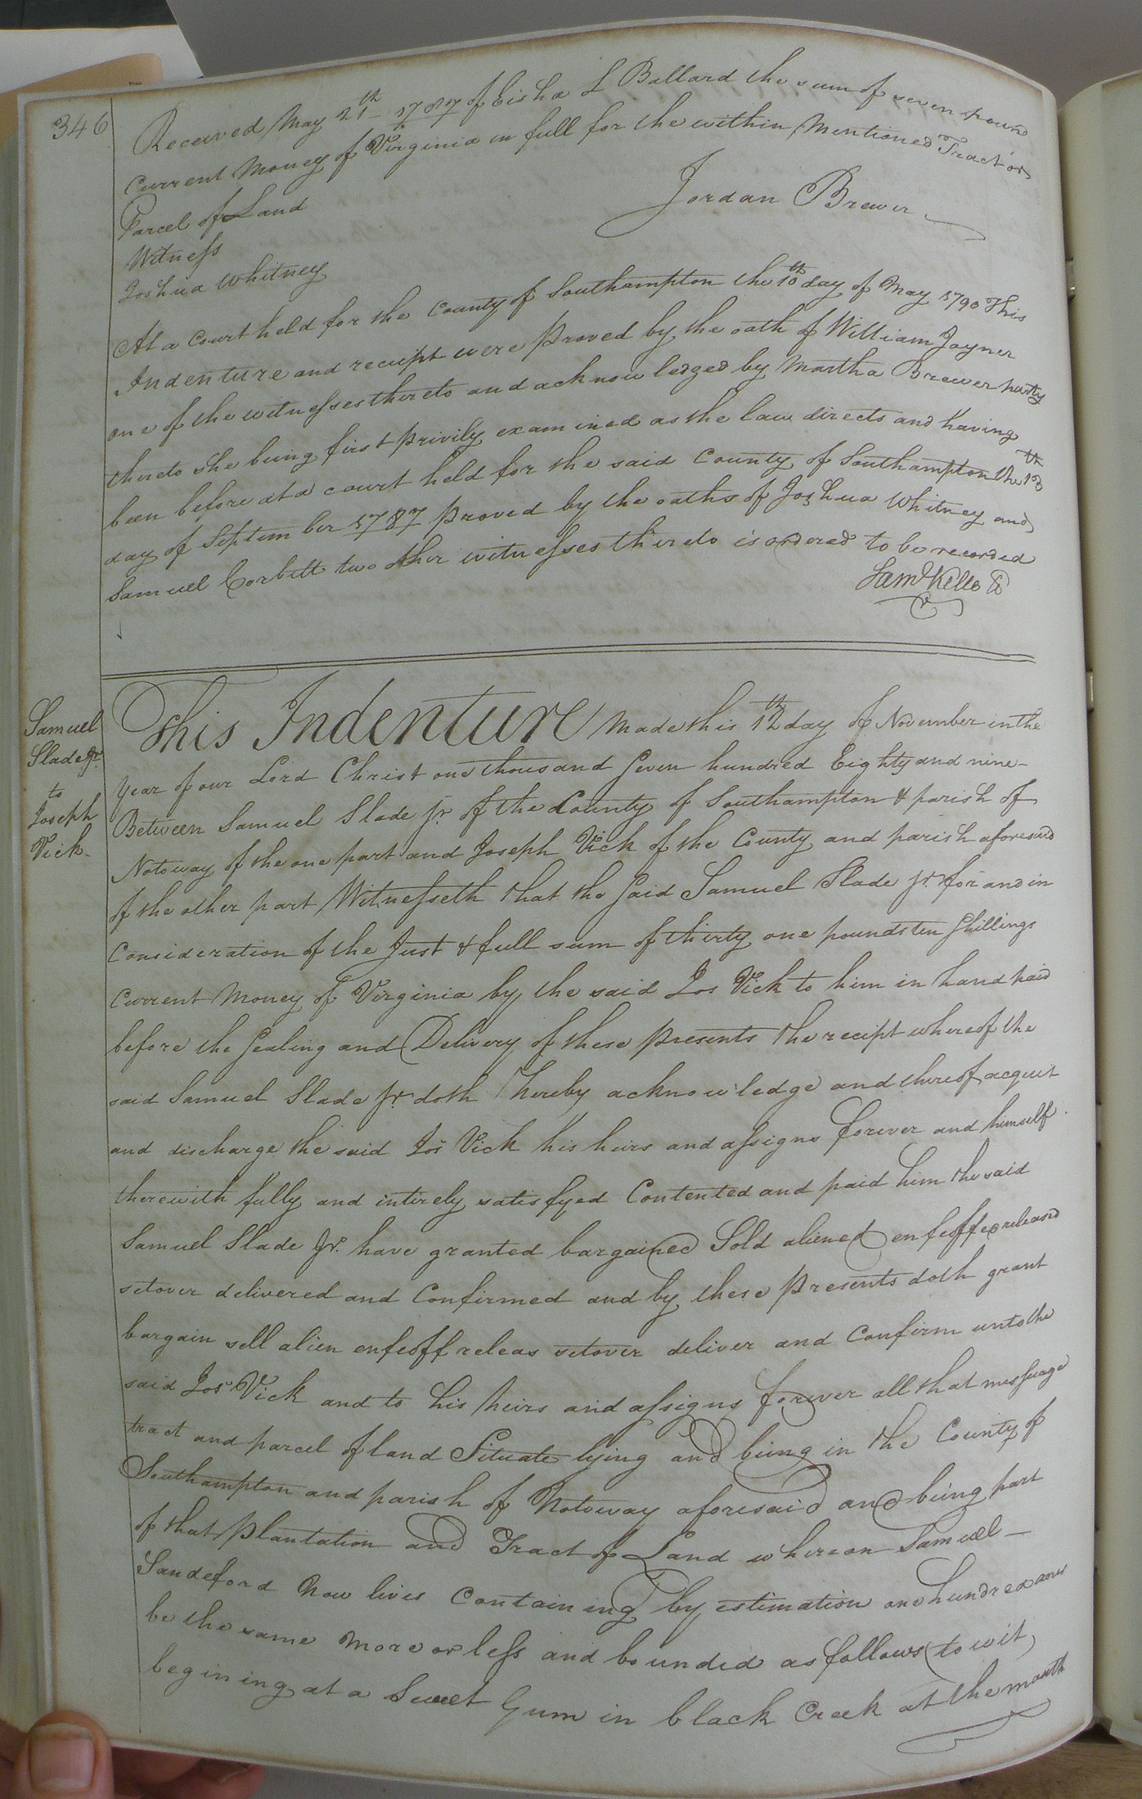 346
Received May 21th 1787 of Elisha L Ballard the sum of seven pound
Current Money of Virginia in full for the within Mentioned Tract or
Parcel of Land
Jordan Brewer
Witness
Joshua Whitney
At a Court held for the County of Southampton the 10th day of May 1790 This
Indenture and receipt were Proved by the oath of William Joyner
one of the witnesses thereto and acknowledged by Martha Brewer party
thereto she being first privily examined as the law directs and having
been before at a court held for the said County of Southampton the 13th
day of September 1787 Proved by the oaths of Joshua Whitney and
Samuel Corbitt two other witnesses thereto is ordered to be recorded
Saml Kello
Samuel
Slade Jr.
to
Joseph
Vick.
This Indenture Made this 12th day of November in the
year of our Lord Christ one thousand Seven hundred Eighty and nine
Between Samuel Slade Jr. of the County of Southampton & parish of
Notoway of the one part and Joseph Vick of the County and parish aforesaid
of the other part Witnesseth that the Said Samuel Slade Jr. for and in
Consideration of the Just & full sum of thirty one pounds ten Shillings
Current Money of Virginia by the said Jos Vick to him in hand paid
before the Sealing and Delivery of these Presents the receipt whereof the
said Samuel Slade Jr. doth hereby acknowledge and thereof acquit
and discharge the said Jos Vick his heirs and assigns forever and himself
therewith fully and intirely satisfyed Contented and paid him the said
Samuel Slade Jr. have granted bargained Sold aliened enfeoffed released
setover delivered and Confirmed and by these Presents doth grant
bargain sell alien enfeoff releas setover deliver and Confirm unto the
said Jos Vick and to his heirs and assigns forever all that messuage
tract and parcel of land Situate lying and being in the County of
Southampton and parish of Notoway aforesaid and being part
of that Plantation and Tract of Land whereon Samuel
Sandeford Now lives Containing by estimation one hundred acres
be the same more or less and bounded as follows (to wit)
begining at a Sweet Gum in black Creek at the mouth